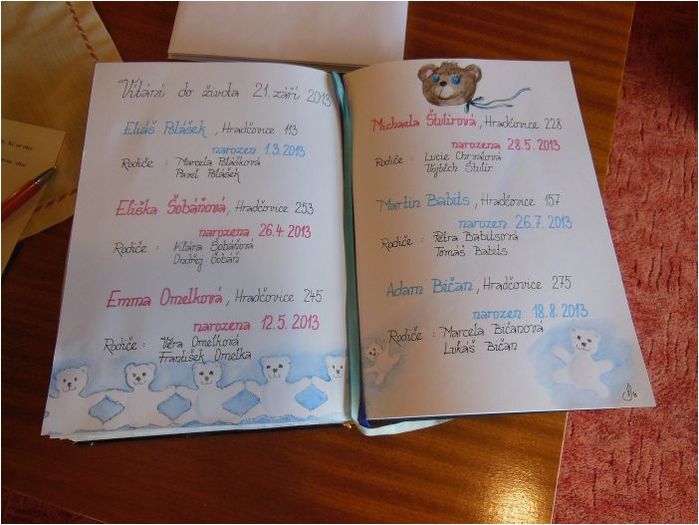 Vítání do života 21. září 2013
Eliáš Polášek, Hradčovice 113
narozen 1.3.2013
Rodiče : Marcela Polášková
Pavel Polášek
Eliška Šobáňová, Hradčovice 253
narozena 26.4. 2013
Rodiče : Klára Šobáňová
Ondřej Šobáň
Emma Omelková, Hradčovice 245
narozena 12.5. 2013
Rodiče : Věra Omelková
František Omelka
Michaela Štulírová, Hradčovice 228
narozena 28.5.2013
Rodiče : Lucie Chrvalová
Vojtěch Štulír
Martin Babits, Hradčovice 157
narozen 26.7. 2013
Rodiče : Petra Babitsová
Tomáš Babits
Adam Bičan, Hradčovice 275
narozen 18.8. 2013
Rodiče : Marcela Bičanová
Lukáš Bičan